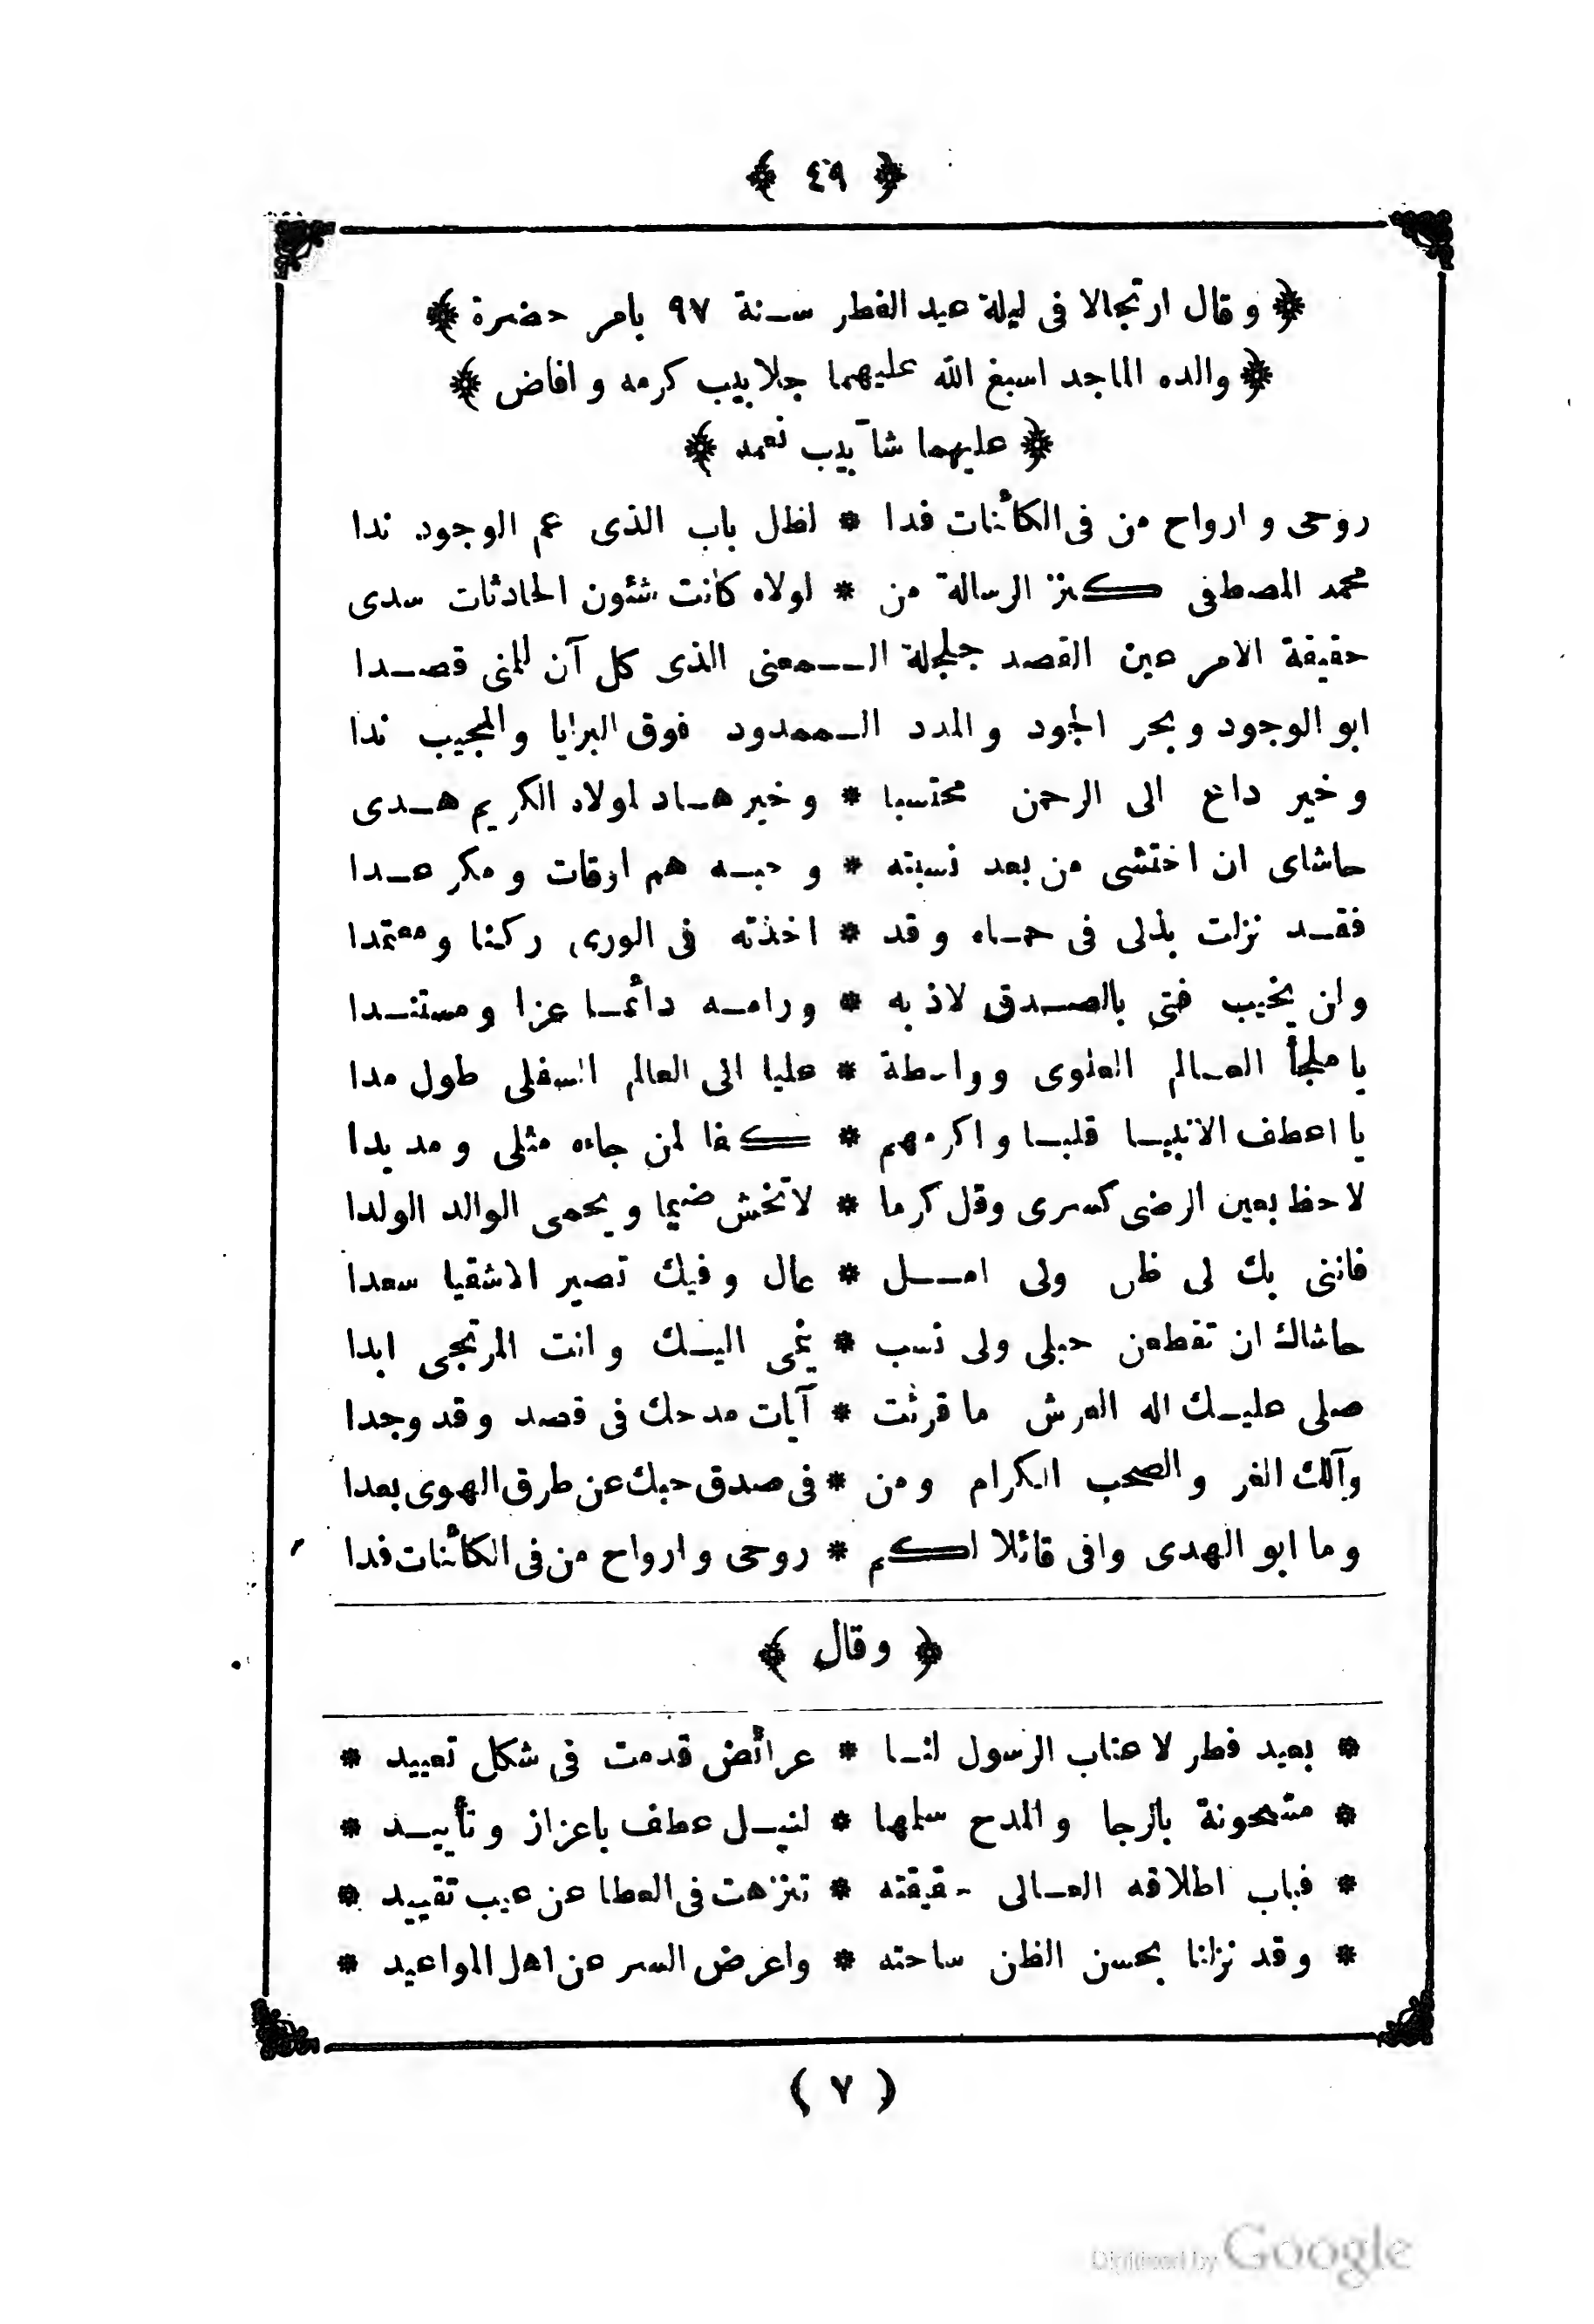 ﴿ ٤٩ ﴾
﴿ وقال ارتجالا فى ليلة عيد الفطر سنة ٩٧ بامر حضرة ﴾
﴿ والده الماجد اسبغ الله عليهما جلابيب كرمه وافاض ﴾
﴿ عليهما شآبيب نعمه ﴾
روحى وارواح من فى الكائنات فدا * لظل باب الذى عم الوجود ندا
محمد المصطفى كنز الرسالة من * لولاه كانت شئون الحادثات سدى
حقيقة الامر عين القصد جلجلة الـمعنى الذى كل آن للمنى قصدا
ابو الوجود وبحر الجود والمدد الـممدود فوق البرايا والمجيب ندا
وخير داع الى الرحمن محتسبا * وخير هاد لولاه الكريم هدى
حاشاى ان اختشى من بعد نسبته * وحبه هم اوقات ومكر عدا
فقد نزلت بذلى فى حماه وقد * اخذته فى الورى ركنا ومعتمدا
ولن يخيب فتى بالصدق لاذ به * ورامه دائما عزا ومستندا
يا ملجأ العالم العلوى وواسطة * عليا الى العالم السفلى طول مدا
يا اعطف الانبيا قلبا واكرمهم * كفا لمن جاءه مثلى ومد يدا
لاحظ بعين الرضى كسرى وقل كرما * لا تخش ضيما ويحمى الوالد الولدا
فاننى بك لى ظن ولى امل * عال وفيك تصير الاشقيا سعدا
حاشاك ان تقطعن حبلى ولى نسب * ينمى اليك وانت المرتجى ابدا
صلى عليك اله العرش ما قرئت * آيات مدحك فى قصد وقد وجدا
وآلك الغر والصحب الكرام ومن * فى صدق حبك عن طرق الهوى بعدا
وما ابو الهدى وافى قائلا لكم * روحى وارواح من فى الكائنات فدا
﴿ وقال ﴾
* بعيد فطر لاعتاب الرسول لنا * عرائض قدمت فى شكل تعييد *
* مشحونة بالرجا والمدح سلمها * لنيل عطف باعزاز وتأييد *
* فباب اطلاقه العالى حقيقته * تنزهت فى العطا عن عيب تقييد *
* وقد نزلنا بحسن الظن ساحته * واعرض السر عن اهل المواعيد *
( ٧ )
Digitized by Google